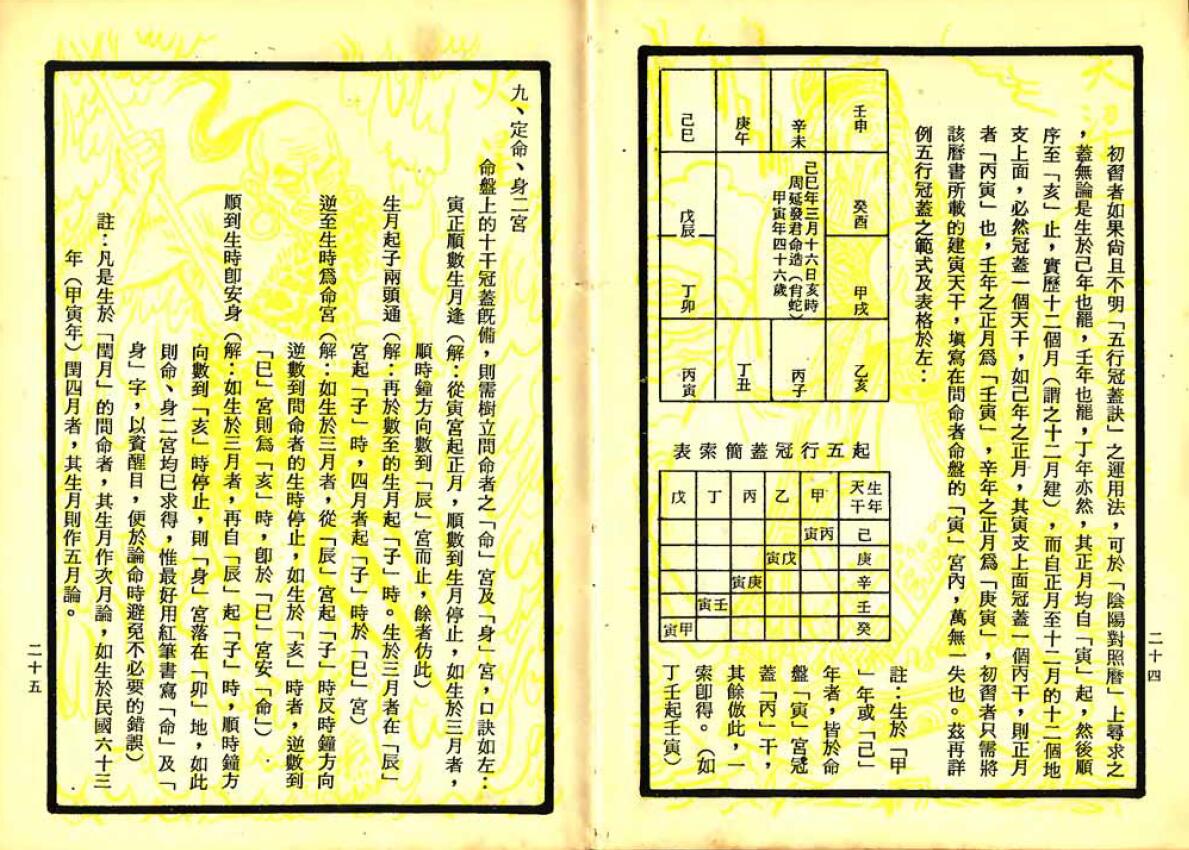 初習者如果尙且不明「五行冠蓋訣」之運用法，可於「陰陽對照曆」上尋求之
，蓋無論是生於己年也罷，壬年也罷，丁年亦然，其正月均自「寅」起，然後順
序至「亥」止，實歷十二個月（謂之十二月建），而自正月至十二月的十二個地
支上面，必然冠蓋一個天干，如己年之正月，其寅支上面冠蓋一個丙干，則正月
者「丙寅」也，壬年之正月爲「壬寅」，辛年之正月爲「庚寅」，初習者只需將
該曆書所載的建寅天干，塡寫在問命者命盤的「寅」宮內，萬無一失也。茲再詳
例五行冠蓋之範式及表格於左：
壬申
辛未
庚午
己巳
癸酉
己巳年三月十六日亥時
周延發君命造（肖蛇）
甲寅年四十六歲
戊辰
甲戌
丁卯
乙亥
丙子
丁丑
丙寅
表索簡蓋冠行五起
生年
天干
甲
乙
丙
丁
戊
己
寅丙
庚
寅戊
辛
寅庚
壬
寅壬
癸
寅甲
註：生於「甲
」年或「己」
年者，皆於命
盤「寅」宮冠
蓋「丙」干，
其餘倣此，一
索卽得。（如
丁壬起壬寅）
二十四
九、定命、身二宮
命盤上的十干冠蓋旣備，則需樹立問命者之「命」宮及「身」宮，口訣如左：
寅正順數生月逢（解：從寅宮起正月，順數到生月停止，如生於三月者，
順時鐘方向數到「辰」宮而止，餘者仿此）
生月起子兩頭通（解：再於數至的生月起「子」時。生於三月者在「辰」
宮起「子」時，四月者起「子」時於「巳」宮）
逆至生時爲命宮（解：如生於三月者，從「辰」宮起「子」時反時鐘方向
逆數到問命者的生時停止，如生於「亥」時者，逆數到
「巳」宮則爲「亥」時，卽於「巳」宮安「命」）
順到生時卽安身（解：如生於三月者，再自「辰」起「子」時，順時鐘方
向數到「亥」時停止，則「身」宮落在「卯」地，如此
則命、身二宮均已求得，惟最好用紅筆書寫「命」及「
身」字，以資醒目，便於論命時避免不必要的錯誤）
註：凡是生於「閏月」的問命者，其生月作次月論，如生於民國六十三
年（甲寅年）閏四月者，其生月則作五月論。
二十五